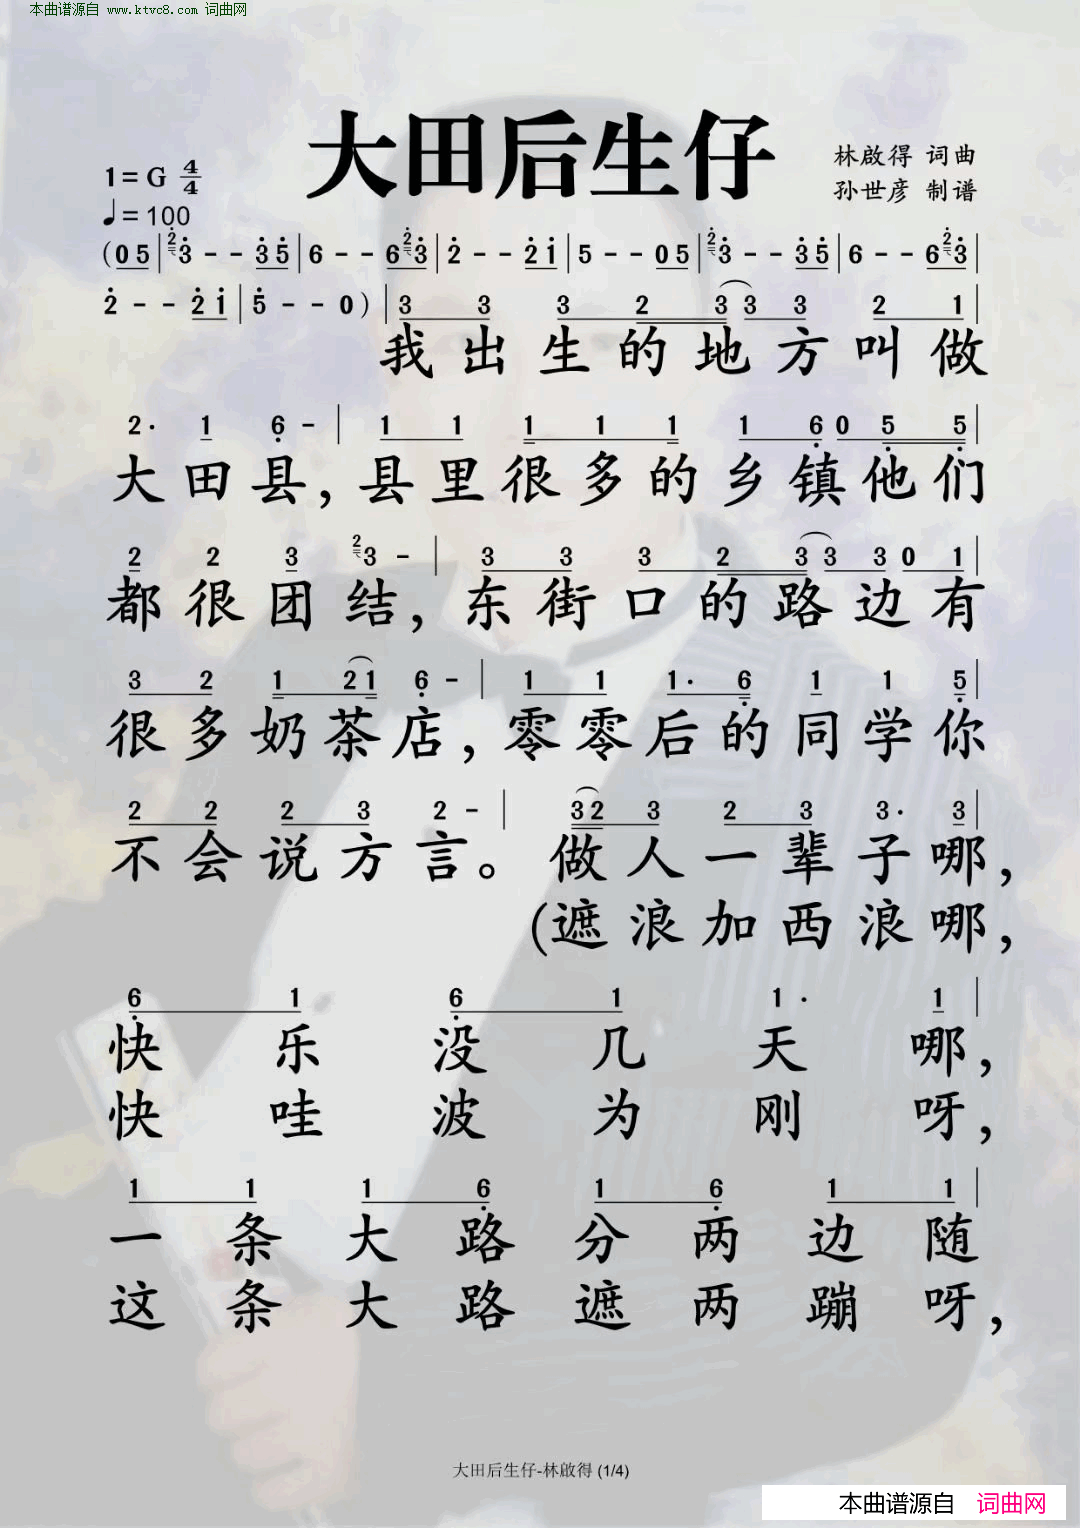 本曲谱源自 www.ktvc8.com 词曲网
大田后生仔
林啟得 词曲
1=G 4/4
孙世彦 制谱
♩=100
(0 5 | 2 3 - - 3 5 | 6 - - 6 2 3 | 2 - - 2 1 | 5 - - 0 5 | 2 3 - - 3 5 | 6 - - 6 2 3 |
2 - - 2 1 | 5 - - 0 ) | 3 3 3 2 3 3 3 2 1 |
我出生的地方叫做
2· 1 6 - | 1 1 1 1 1 1 6 0 5 5 |
大田县,县里很多的乡镇他们
2 2 3 2 3 - | 3 3 3 2 3 3 3 0 1 |
都很团结,东街口的路边有
3 2 1 2 1 6 - | 1 1 1· 6 1 1 5 |
很多奶茶店,零零后的同学你
2 2 2 3 2 - | 3 2 3 2 3 3· 3 |
不会说方言。做人一辈子哪,
(遮浪加西浪哪,
6 1 6 1 1· 1 |
快乐没几天哪,
快哇波为刚呀,
1 1 1 6 1 6 1 1 |
一条大路分两边随
这条大路遮两蹦呀,
大田后生仔-林啟得 (1/4)
本曲谱源自 词曲网